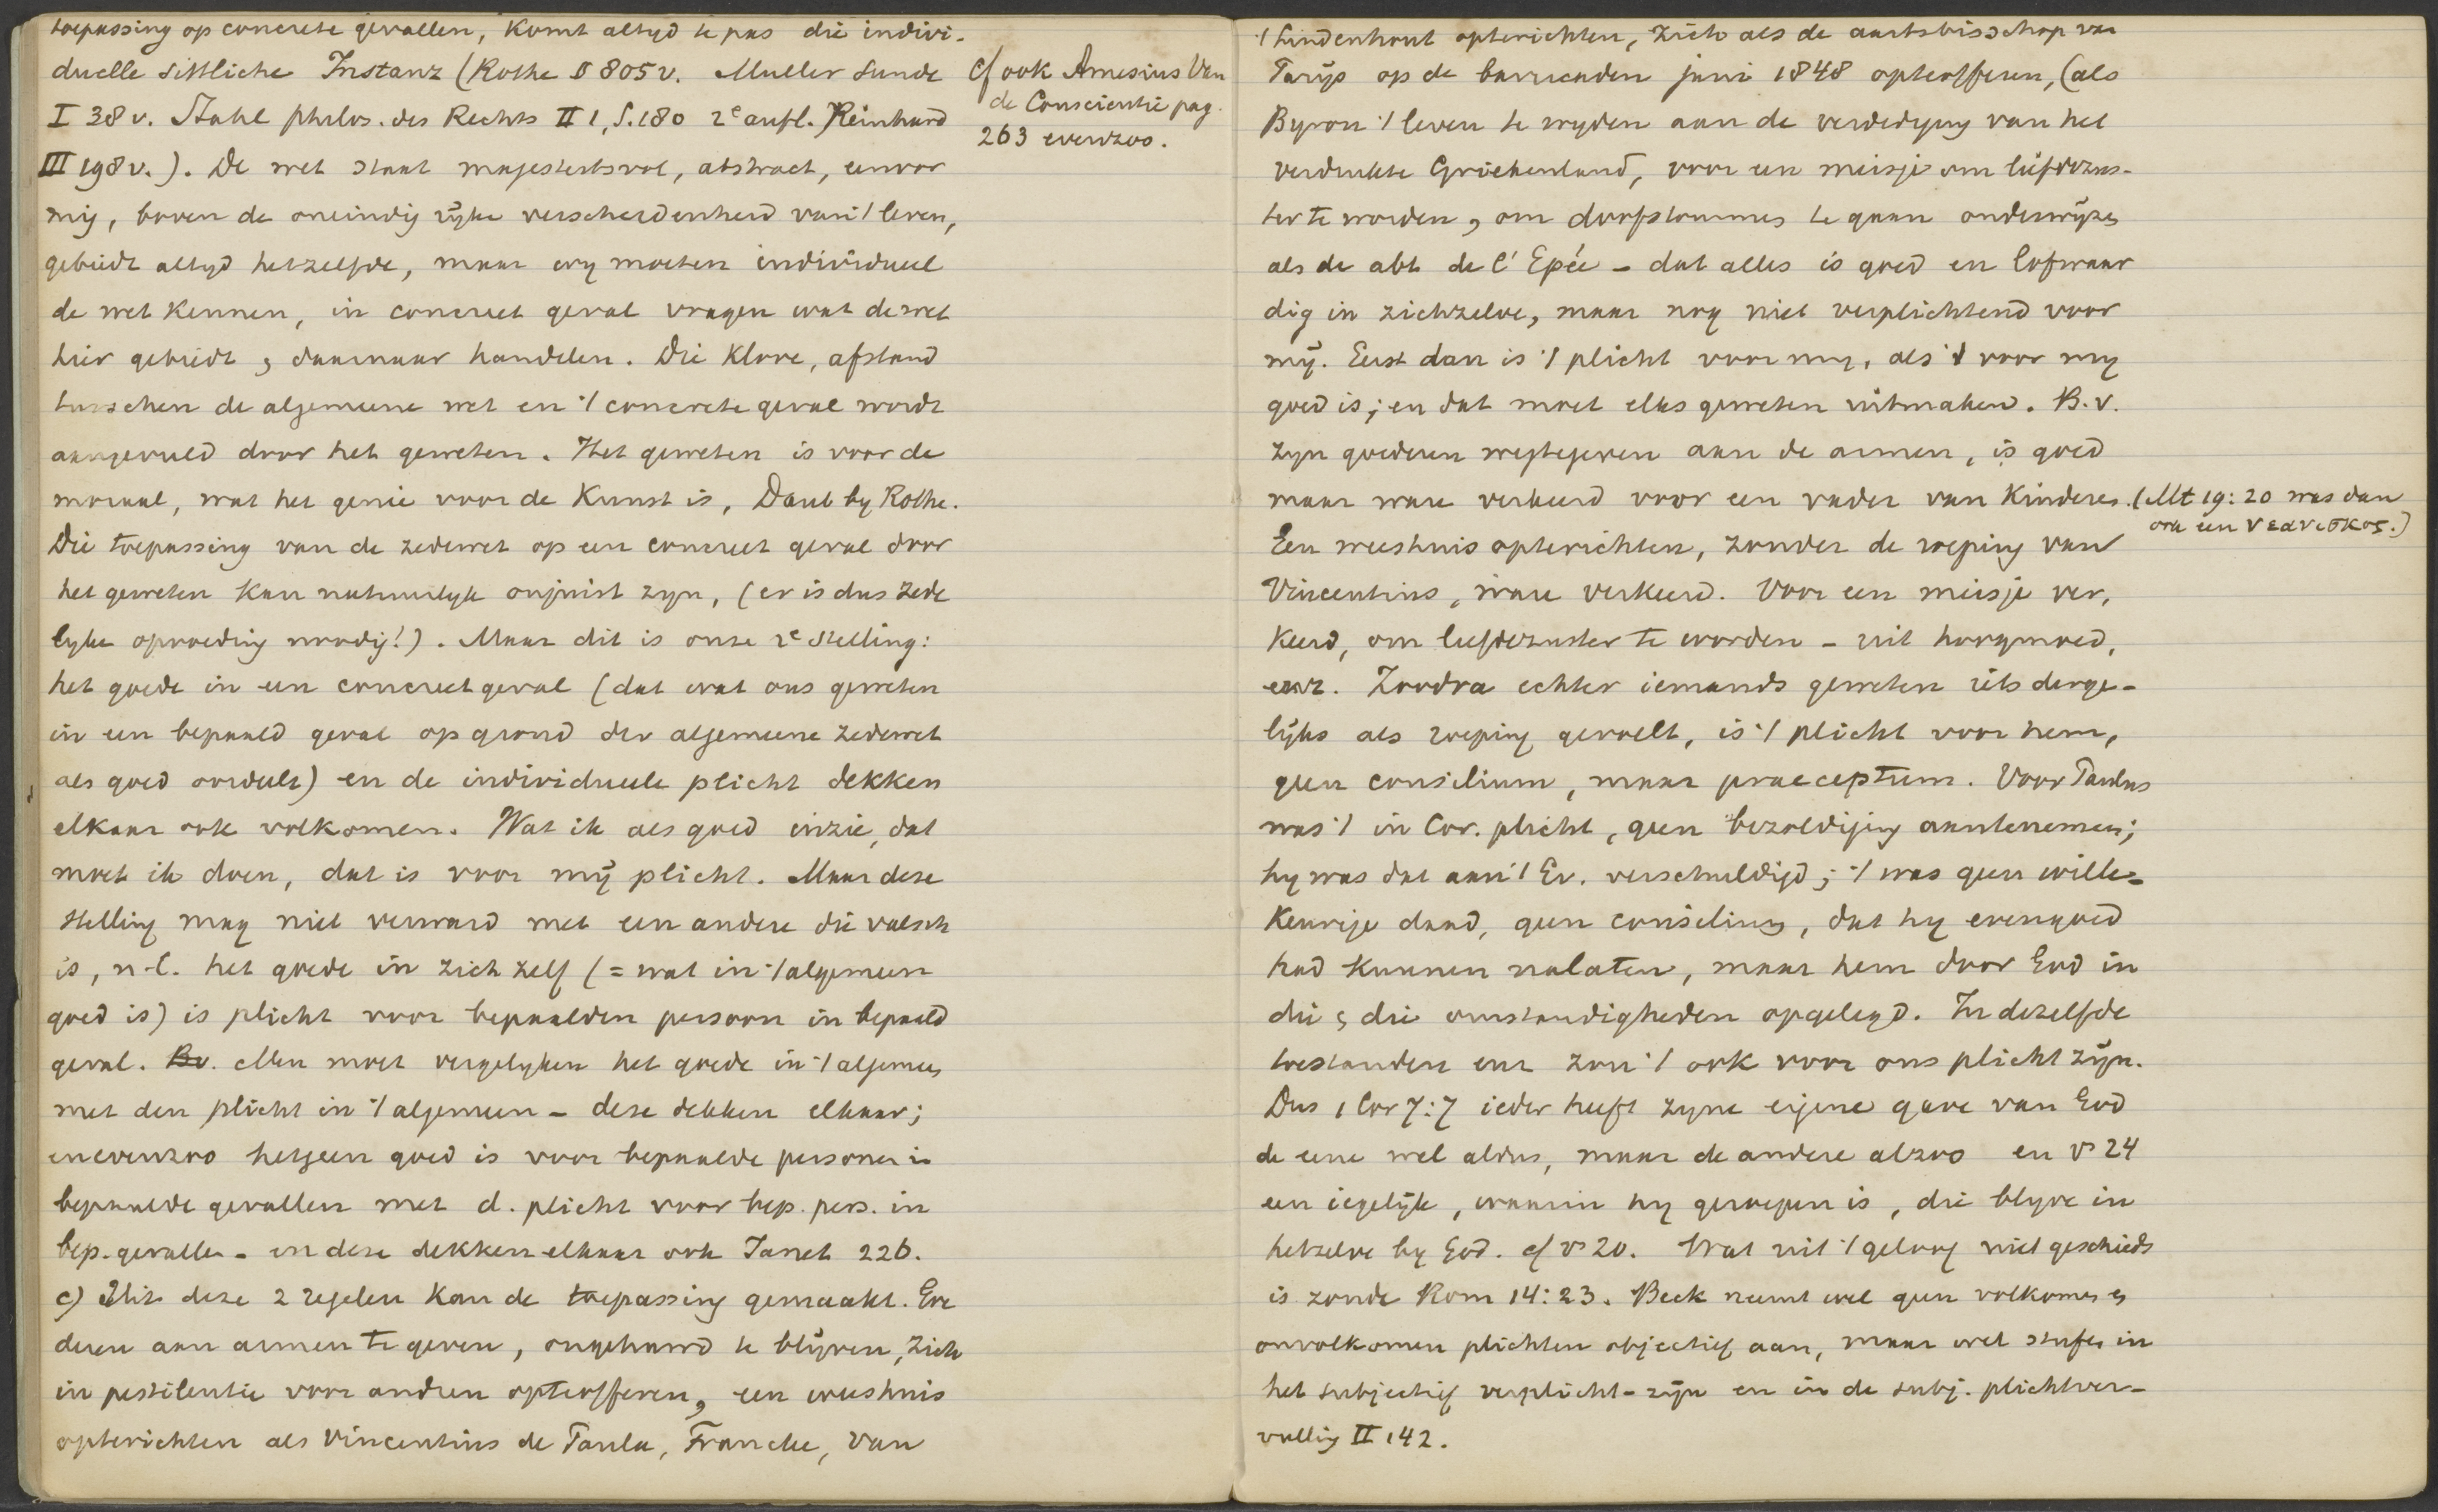 toepassing op concrete gevallen, komt altyd te pas die indivi-
duelle sittliche Instanz (Rothe § 805 v. Muller Sunde
I 38 v. Stahl philos. des Rechts II 1, S. 180 2e aufl. Reinhard
III 198 v.). De wet staat majesteitsvol, abstract, eenvor
mig, boven de oneindig rijke verscheidenheid van 't leven,
gebiedt altyd hetzelfde, maar wy moeten individueel
de wet kennen, in concreet geval vragen wat de wet
hier gebiedt en daarnaar handelen. Die klove, afstand
tusschen de algemeene wet en 't concrete geval wordt
aangevuld door het geweten. Het geweten is voor de
moraal, wat het genie voor de Kunst is, Daub by Rothe.
Die toepassing van de zedewet op een concreet geval door
het geweten kan natuurlyk onjuist zyn, (er is dus zede
lyke opvoeding noodig!). Maar dit is onze 2e stelling:
het goede in een concreet geval (dat wat ons geweten
in een bepaald geval op grond der algemeene zedewet
als goed oordeelt) en de individueele plicht dekken
elkaar ook volkomen. Wat ik als goed inzie, dat
moet ik doen, dat is voor mij plicht. Maar deze
stelling mag niet verward met een andere die valsch
is, n-l. het goede in zich zelf (= wat in 't algemeen
goed is) is plicht voor bepaalden persoon in bepaald
geval. Bv. Men moet vergelyken het goede in 't algemeen
met den plicht in 't algemeen - deze dekken elkaar;
en evenzoo hetgeen goed is voor bepaalde personen in
bepaalde gevallen met d. plicht voor bep. pers. in
bep. gevallen - en deze dekken elkaar ook Janet 226.
c) Uit deze 2 regelen kan de toepassing gemaakt. Goe
deren aan armen te geven, ongehuwd te blijven, zich
in pestilentie voor andren opteofferen, een weeshuis
opterichten als Vincentius de Paula, Francke, van
cf ook Amesius Van
de Conscientie pag.
263 evenzoo.
't Lindenhout opterichten, zich als de aartsbisschop van
Parijs op de barricaden juni 1848 opteofferen, (als
Byron 't leven te wyden aan de verdedyging van het
verdrukte Griekenland, voor een meisje om liefdezus-
ter te worden, om doofstommen te gaan onderwijzen
als de abt de l'Epée - dat alles is goed en lofwaar
dig in zichzelve, maar nog niet verplichtend voor
mij. Eerst dan is 't plicht voor my, als 't voor my
goed is; en dat moet elks geweten uitmaken. B.v.
zyn goederen wegtegeven aan de armen, is goed
maar ware verkeerd voor een vader van kinderen. (Mt 19:20 was dan
ook een νεανισκος.)
Een weeshuis opterichten, zonder de roeping van
Vincentius, ware verkeerd. Voor een meisje ver,
keerd, om liefdezuster te worden - uit hoogmoed,
enz. Zoodra echter iemands geweten iets derge-
lijks als roeping gevoelt, is 't plicht voor hem,
geen consilium, maar praeceptum. Voor Paulus
was 't in Cor. plicht, geen bezoldiging aantenemen;
hy was dat aan 't Ev. verschuldigd; 't was geen wille-
keurige daad, geen consilium, dat hy evengoed
had kunnen nalaten, maar hem door God in
die en die omstandigheden opgelegd. In dezelfde
toestanden enz zou 't ook voor ons plicht zijn.
Dus 1 Cor 7:7 ieder heeft zyne eigene gave van God
de eene wel aldus, maar de andere alzoo en vs 24
een iegelijk, waarin hy geroepen is, die blyve in
hetzelve by God. cf vs 20. Wat uit 't geloof niet geschiedt
is zonde Rom 14:23. Beck neemt wel geen volkomen en
onvolkomen plichten objectief aan, maar wel stufen in
het subjectief verplicht-zijn en in de subj. plichtver-
vulling II 142.